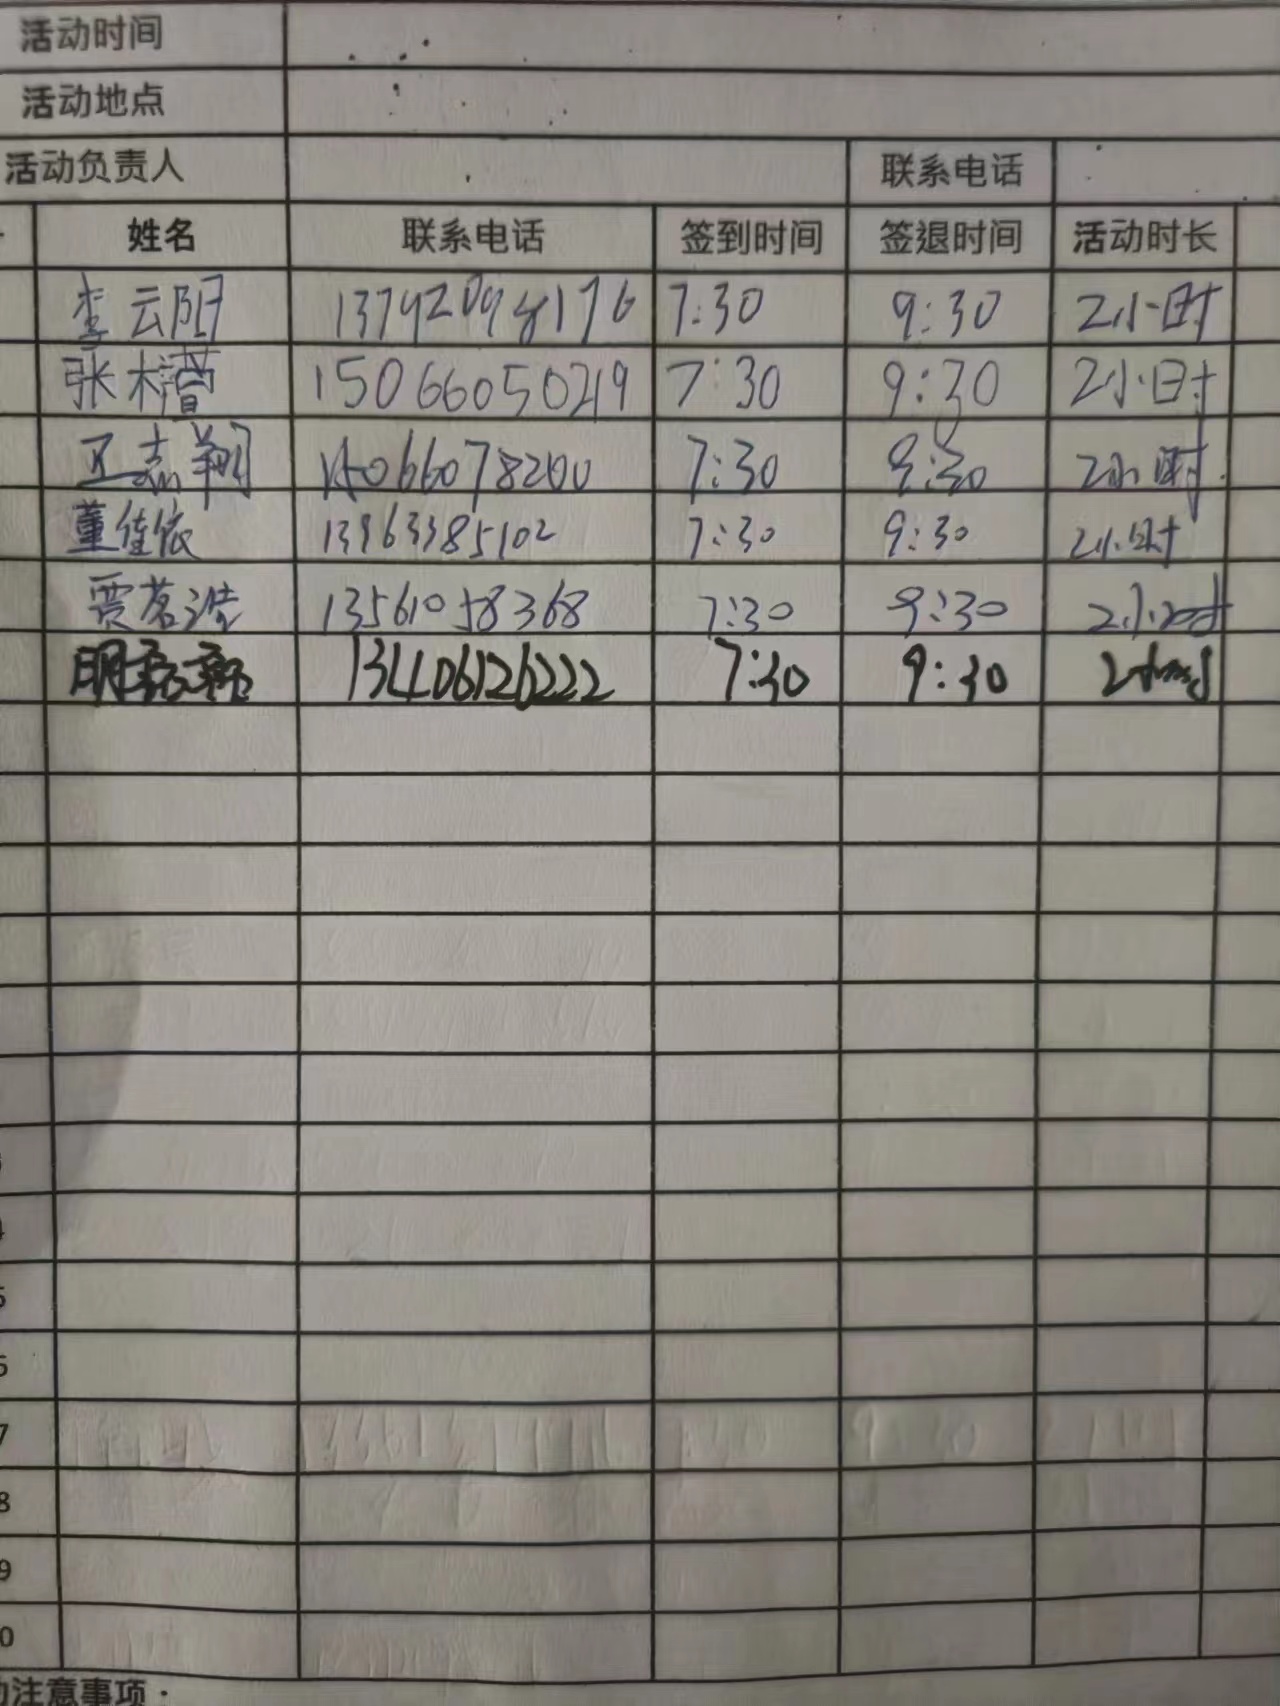 活动时间
活动地点
活动负责人 联系电话
姓名 联系电话 签到时间 签退时间 活动时长
李云阳 13792098176 7:30 9:30 2小时
张 15066050219 7:30 9:30 2小时
王志翔 15066078200 7:30 9:30 2小时
董佳依 13963385102 7:30 9:30 2小时
贾茗浩 13561058368 7:30 9:30 2小时
明 13406126222 7:30 9:30 2小时
7
8
9
0
动注意事项: